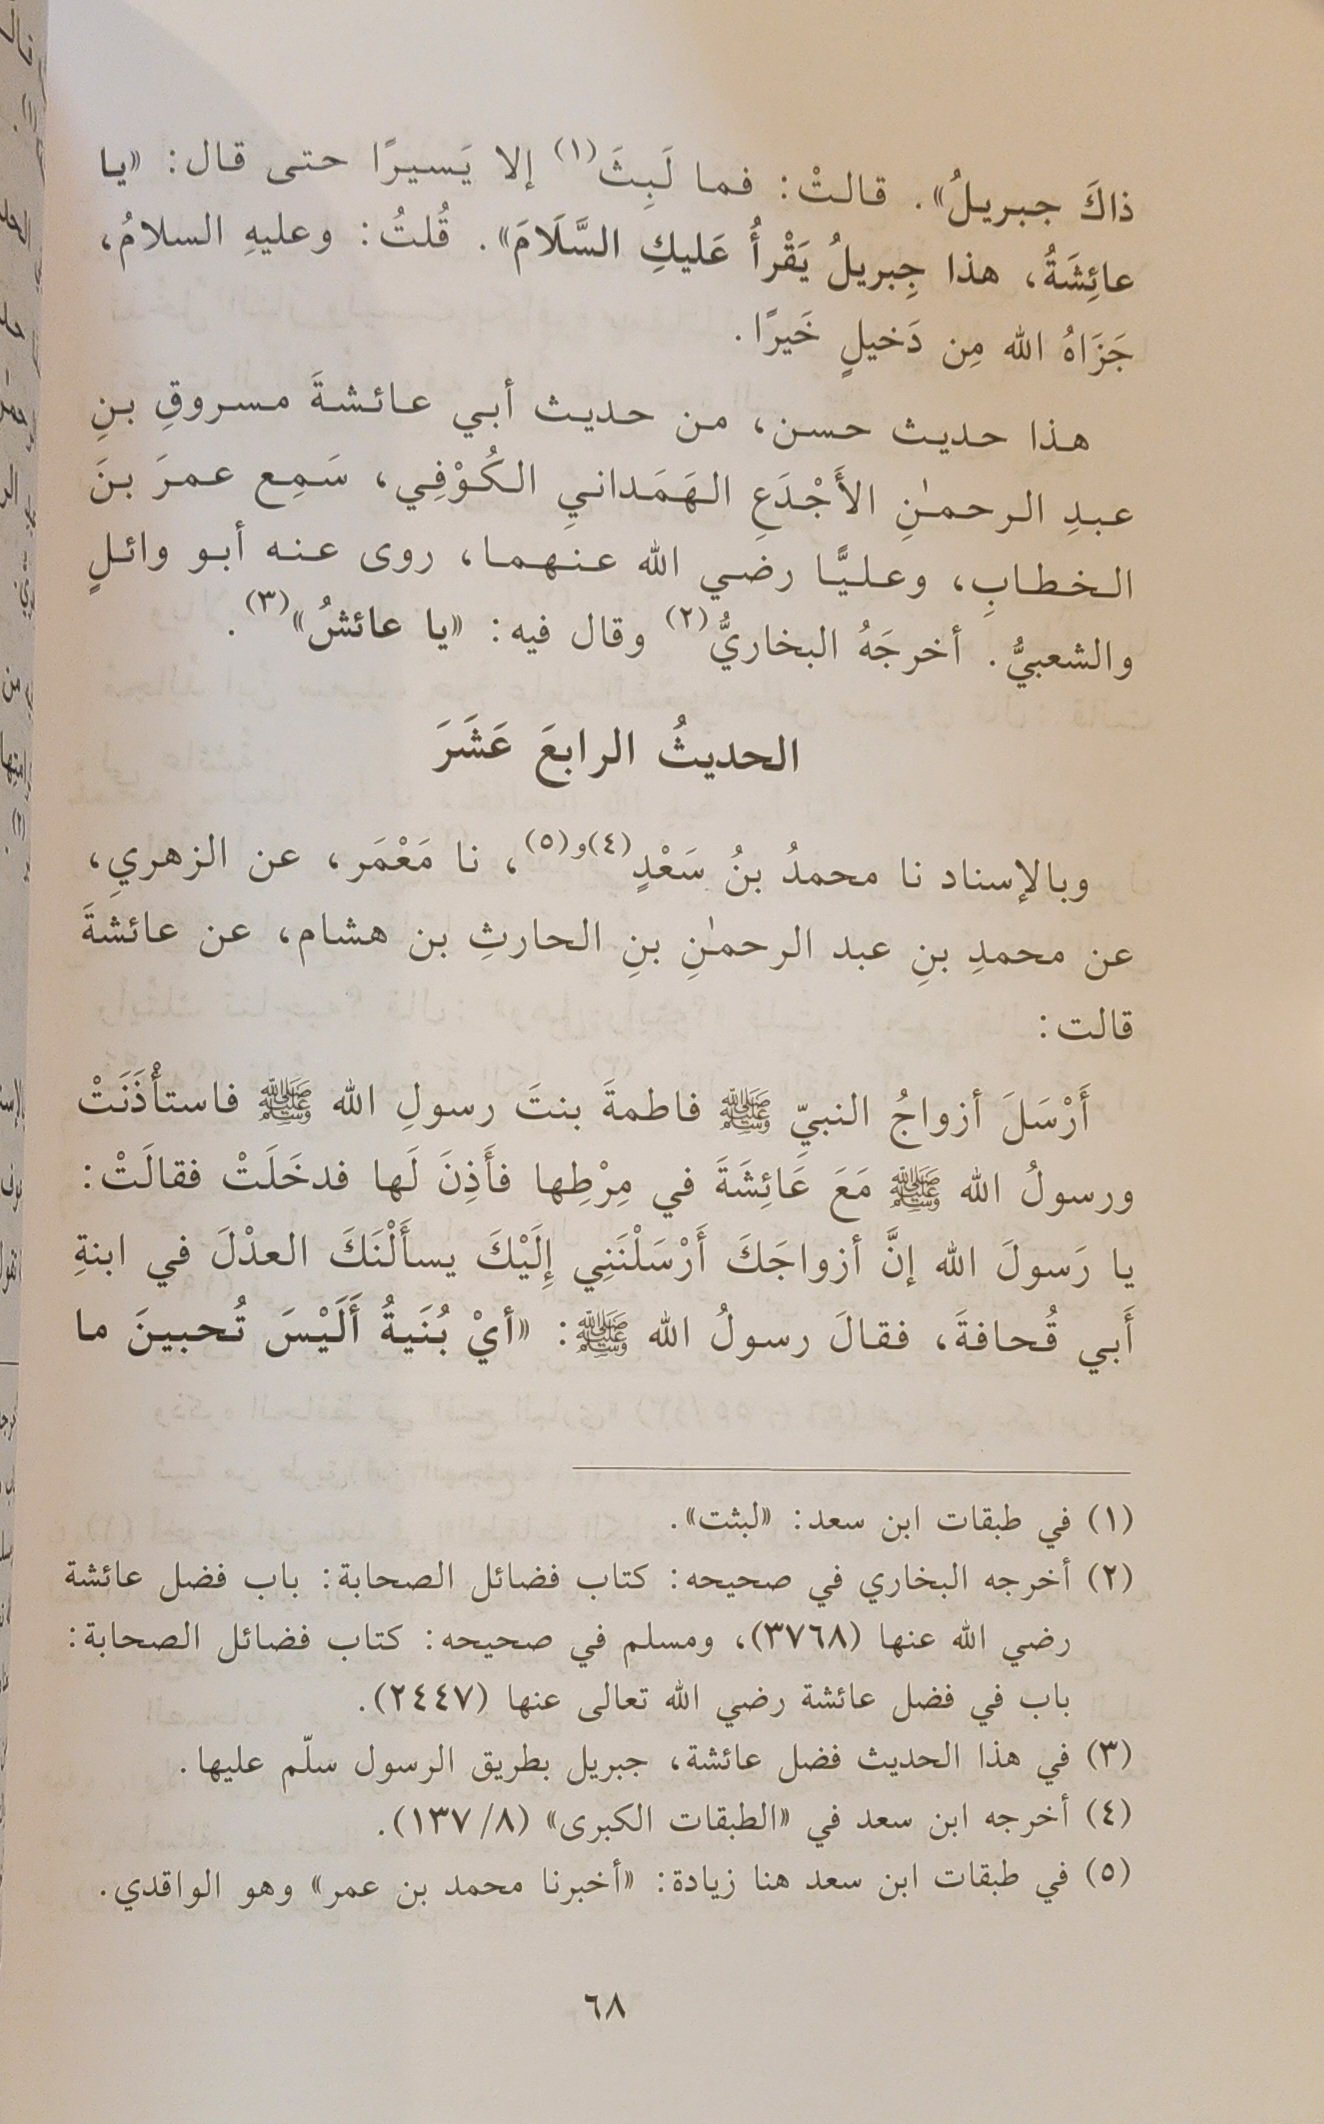 ذاكَ جبريلُ». قالتْ: فما لَبِثَ(١) إلا يَسيرًا حتى قال: «يا
عائِشَةُ، هذا جِبريلُ يَقْرأُ عَليكِ السَّلَامَ». قُلتُ: وعليهِ السلامُ،
جَزَاهُ الله مِن دَخيلٍ خَيرًا.
هذا حديث حسن، من حديث أبي عائشةَ مسروقِ بنِ
عبدِ الرحمٰنِ الأَجْدَعِ الهَمَدانيِ الكُوْفِي، سَمِع عمرَ بنَ
الخطابِ، وعليًّا رضي الله عنهما، روى عنه أبو وائلٍ
والشعبيُّ. أخرجَهُ البخاريُّ(٢) وقال فيه: «يا عائشُ»(٣).
الحديثُ الرابعَ عَشَرَ
وبالإسناد نا محمدُ بنُ سَعْدٍ(٤)و(٥)، نا مَعْمَر، عن الزهريِ،
عن محمدِ بنِ عبد الرحمٰنِ بنِ الحارثِ بن هشام، عن عائشةَ
قالت:
أَرْسَلَ أزواجُ النبيِّ ﷺ فاطمةَ بنتَ رسولِ الله ﷺ فاستأْذَنَتْ
ورسولُ الله ﷺ مَعَ عَائِشَةَ في مِرْطِها فأَذِنَ لَها فدخَلَتْ فقالَتْ:
يا رَسولَ الله إنَّ أزواجَكَ أَرْسَلْنَنِي إِلَيْكَ يسأَلْنَكَ العدْلَ في ابنةِ
أَبي قُحافةَ، فقالَ رسولُ الله ﷺ: «أيْ بُنَيةُ أَلَيْسَ تُحبينَ ما
(١) في طبقات ابن سعد: «لبثت».
(٢) أخرجه البخاري في صحيحه: كتاب فضائل الصحابة: باب فضل عائشة
رضي الله عنها (٣٧٦٨)، ومسلم في صحيحه: كتاب فضائل الصحابة:
باب في فضل عائشة رضي الله تعالى عنها (٢٤٤٧).
(٣) في هذا الحديث فضل عائشة، جبريل بطريق الرسول سلّم عليها.
(٤) أخرجه ابن سعد في «الطبقات الكبرى» (٨/ ١٣٧).
(٥) في طبقات ابن سعد هنا زيادة: «أخبرنا محمد بن عمر» وهو الواقدي.
٦٨